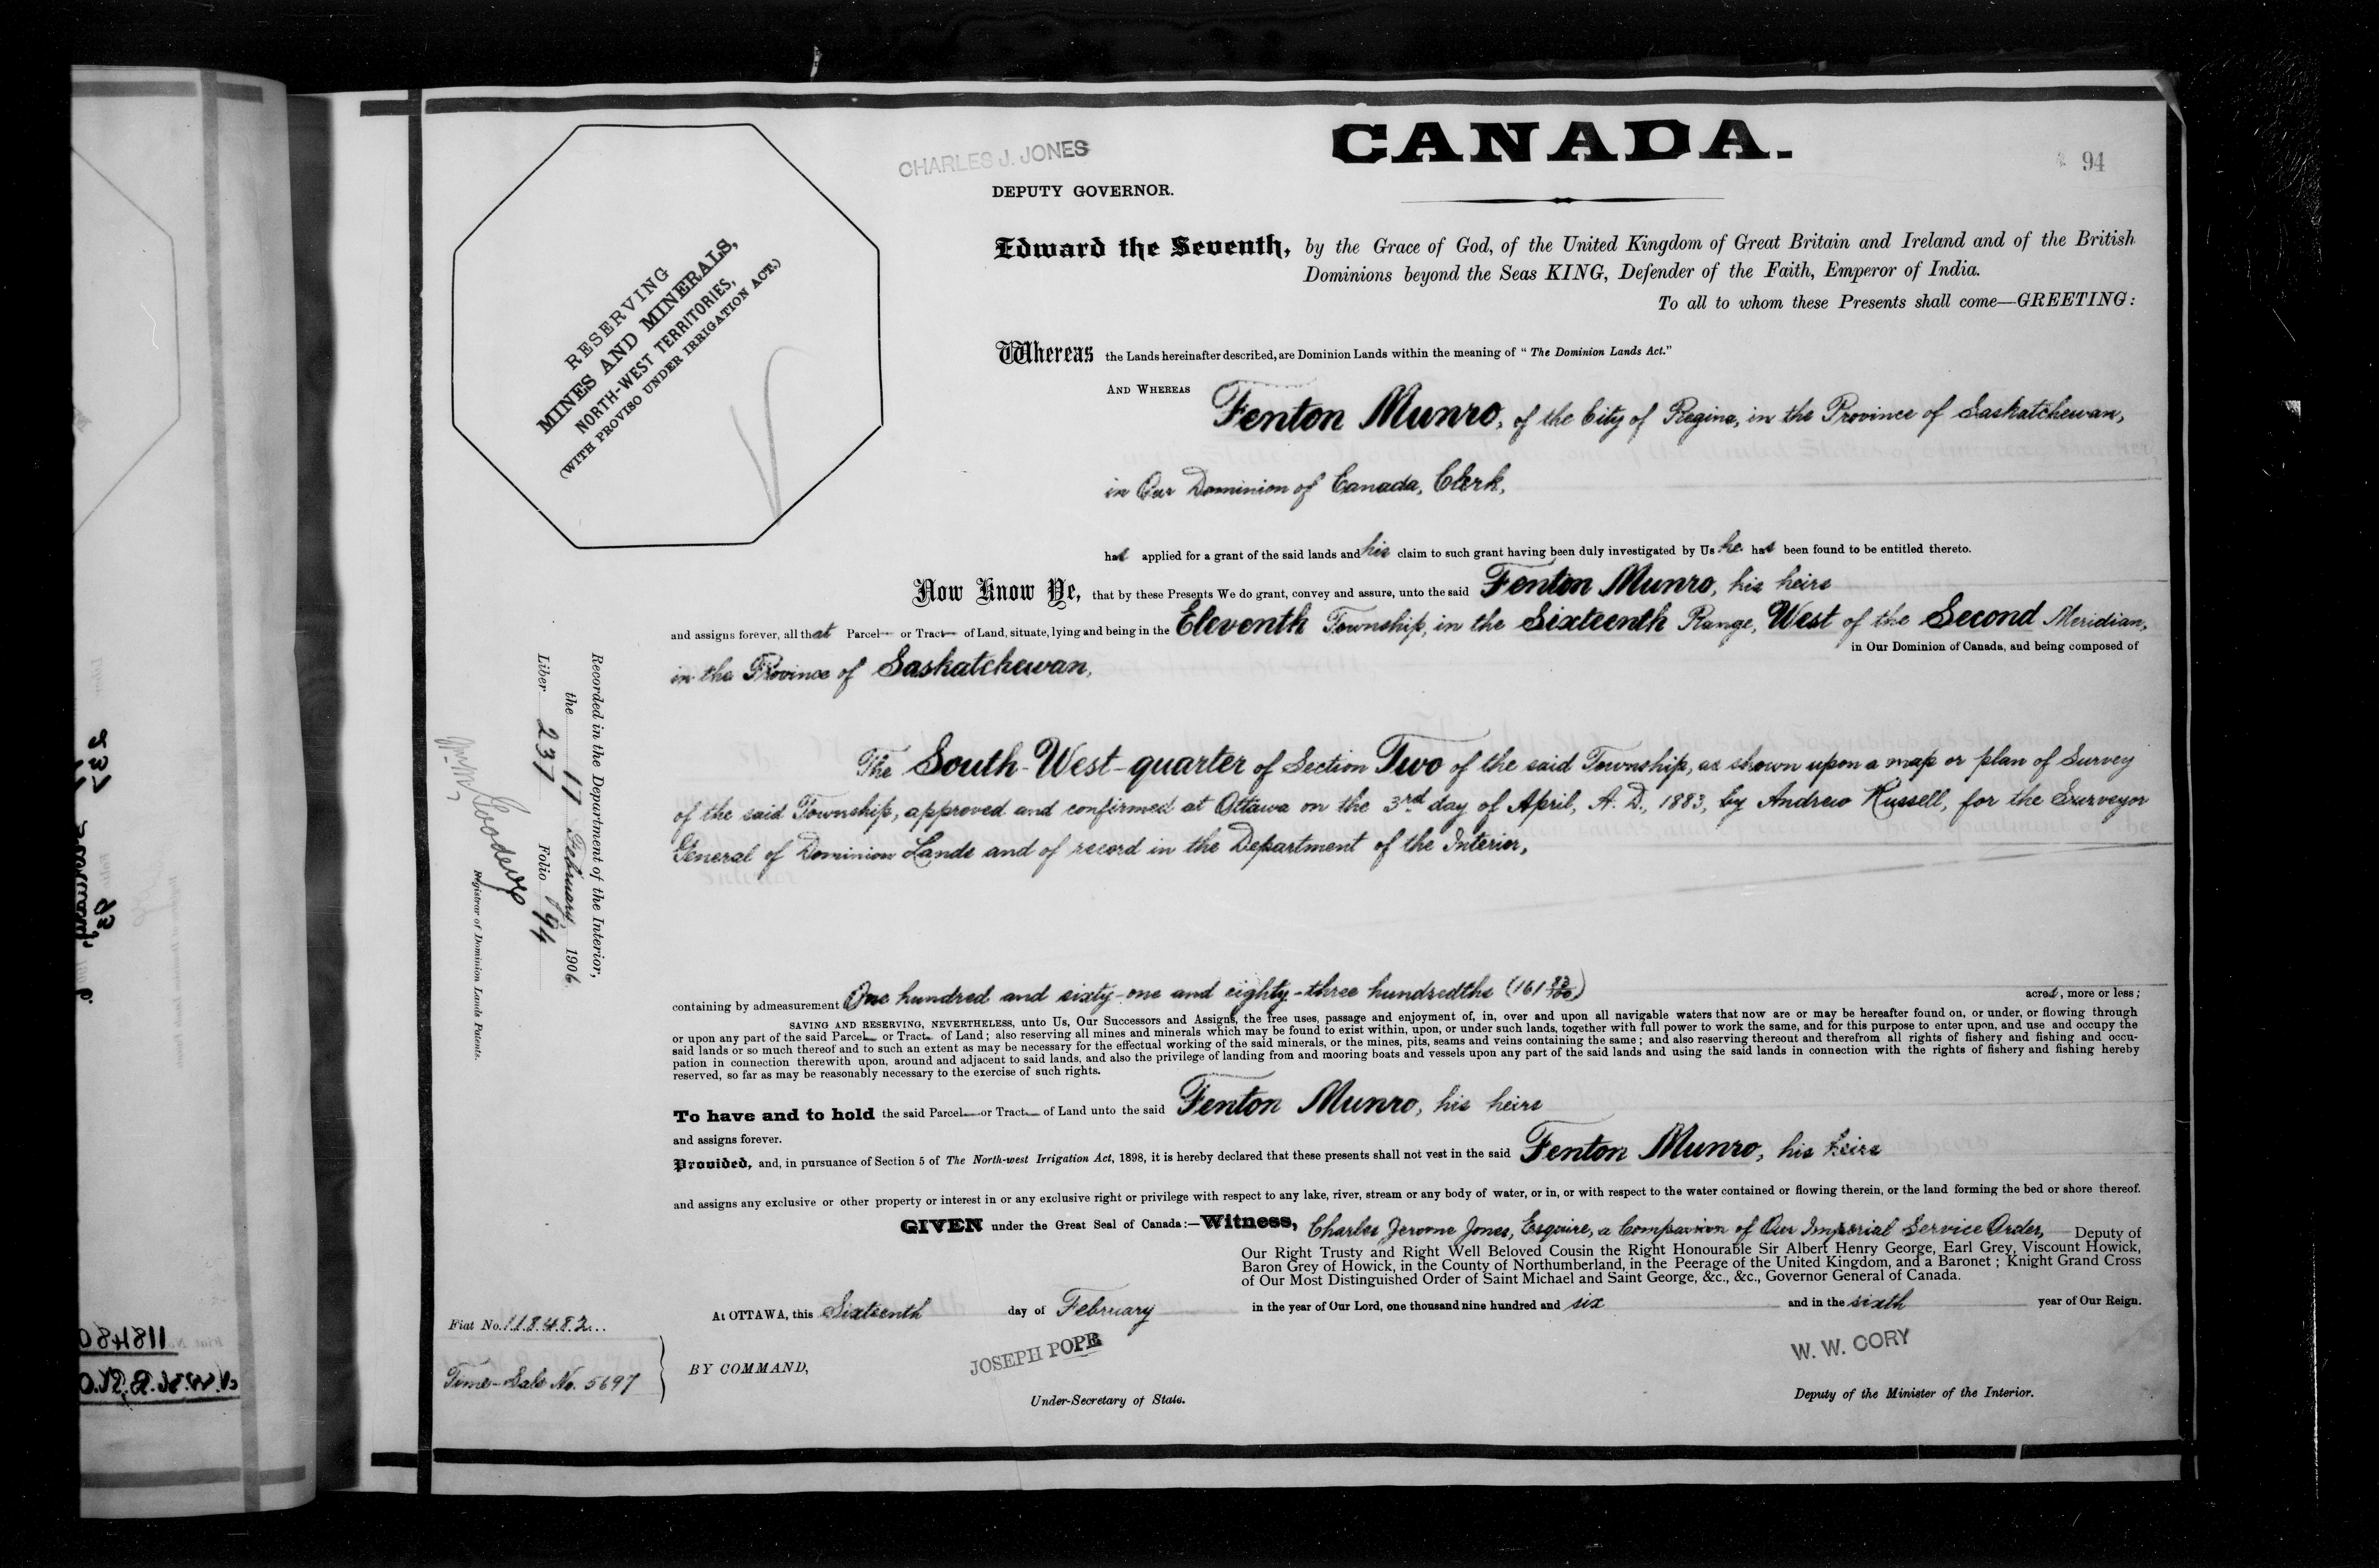 CANADA.
94
CHARLES J. JONES
DEPUTY GOVERNOR.
RESERVING
MINES AND MINERALS,
NORTH-WEST TERRITORIES,
(WITH PROVISO UNDER IRRIGATION ACT.)
Edward the Seventh, by the Grace of God, of the United Kingdom of Great Britain and Ireland and of the British
Dominions beyond the Seas KING, Defender of the Faith, Emperor of India.
To all to whom these Presents shall come—GREETING:
Whereas the Lands hereinafter described, are Dominion Lands within the meaning of "The Dominion Lands Act."
AND WHEREAS Fenton Munro, of the City of Regina, in the Province of Saskatchewan,
in Our Dominion of Canada, Clerk,
has applied for a grant of the said lands and his claim to such grant having been duly investigated by Us he has been found to be entitled thereto.
Now Know Ye, that by these Presents We do grant, convey and assure, unto the said Fenton Munro, his heirs
and assigns forever, all that Parcel or Tract of Land, situate, lying and being in the Eleventh Township, in the Sixteenth Range, West of the Second Meridian,
in the Province of Saskatchewan, in Our Dominion of Canada, and being composed of
The South-West-quarter of Section Two of the said Township, as shown upon a map or plan of Survey
of the said Township, approved and confirmed at Ottawa on the 3rd day of April, A. D., 1883, by Andrew Russell, for the Surveyor
General of Dominion Lands and of record in the Department of the Interior,
containing by admeasurement One hundred and sixty-one and eighty-three hundredths (161 83/100) acres, more or less;
SAVING AND RESERVING, NEVERTHELESS, unto Us, Our Successors and Assigns, the free uses, passage and enjoyment of, in, over and upon all navigable waters that now are or may be hereafter found on, or under, or flowing through
or upon any part of the said Parcel or Tract of Land; also reserving all mines and minerals which may be found to exist within, upon, or under such lands, together with full power to work the same, and for this purpose to enter upon, and use and occupy the
said lands or so much thereof and to such an extent as may be necessary for the effectual working of the said minerals, or the mines, pits, seams and veins containing the same; and also reserving thereout and therefrom all rights of fishery and fishing and occu-
pation in connection therewith upon, around and adjacent to said lands, and also the privilege of landing from and mooring boats and vessels upon any part of the said lands and using the said lands in connection with the rights of fishery and fishing hereby
reserved, so far as may be reasonably necessary to the exercise of such rights.
To have and to hold the said Parcel or Tract of Land unto the said Fenton Munro, his heirs
and assigns forever.
Provided, and, in pursuance of Section 5 of The North-west Irrigation Act, 1898, it is hereby declared that these presents shall not vest in the said Fenton Munro, his heirs
and assigns any exclusive or other property or interest in or any exclusive right or privilege with respect to any lake, river, stream or any body of water, or in, or with respect to the water contained or flowing therein, or the land forming the bed or shore thereof.
GIVEN under the Great Seal of Canada:—Witness, Charles Jerome Jones, Esquire, a Companion of Our Imperial Service Order, Deputy of
Our Right Trusty and Right Well Beloved Cousin the Right Honourable Sir Albert Henry George, Earl Grey, Viscount Howick,
Baron Grey of Howick, in the County of Northumberland, in the Peerage of the United Kingdom, and a Baronet; Knight Grand Cross
of Our Most Distinguished Order of Saint Michael and Saint George, &c., &c., Governor General of Canada.
At OTTAWA, this Sixteenth day of February in the year of Our Lord, one thousand nine hundred and six and in the sixth year of Our Reign.
BY COMMAND,
JOSEPH POPE
Under-Secretary of State.
W. W. CORY
Deputy of the Minister of the Interior.
Fiat No. 118482
Time-Sale No. 5697
Recorded in the Department of the Interior,
the 17 February 1906
Liber 237 Folio 94
Registrar of Dominion Lands Patents.
237
93
118480